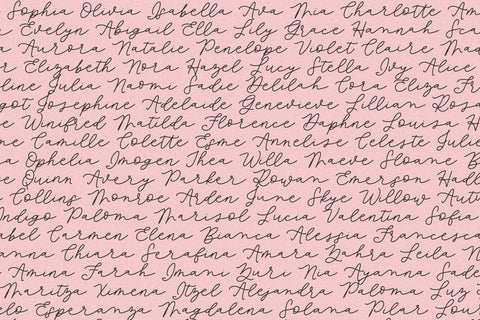 Sophia Olivia Isabella Ava Mia Charlotte Am
e Evelyn Abigail Ella Lily Grace Hannah Sca
a Aurora Natalie Penelope Violet Claire Mad
r Elizabeth Nora Hazel Lucy Stella Ivy Alice
line Julia Naomi Sadie Delilah Cora Eliza Fr
got Josephine Adelaide Genevieve Lillian Rosa
e Winifred Matilda Florence Daphne Louisa H
me Camille Colette Esme Annelise Celeste Julie
a Ophelia Imogen Thea Willa Maeve Sloane B
se Quinn Avery Parker Rowan Emerson Hadl
Collins Monroe Arden June Skye Willow Autu
Indigo Paloma Marisol Lucia Valentina Sofia
abel Carmen Elena Bianca Alessia Francesca
anna Chiara Serafina Amara Zahra Leila N
Amina Farah Imani Zuri Nia Ayanna Sade
Maritza Ximena Itzel Alejandra Paloma Luz
elo Esperanza Magdalena Solana Pilar Lou